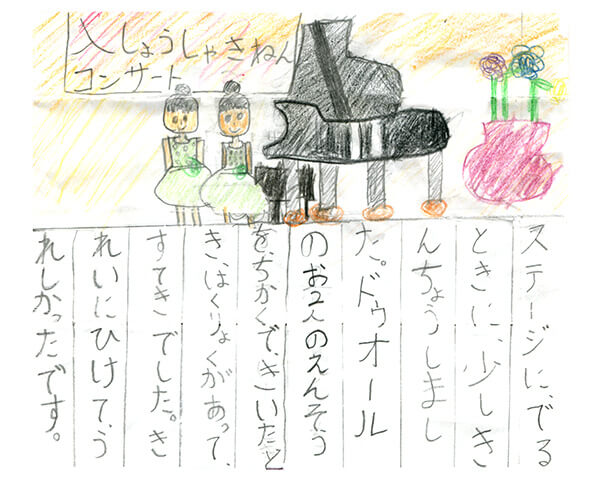 入しょうしゃきねん
コンサート
ステージにでる
ときに、少しき
んちょうしまし
た。ドゥオール
のお2人のえんそう
を、ちかくで、きいたと
き、はくりょくがあって、
すてきでした。き
れいにひけて、う
れしかったです。